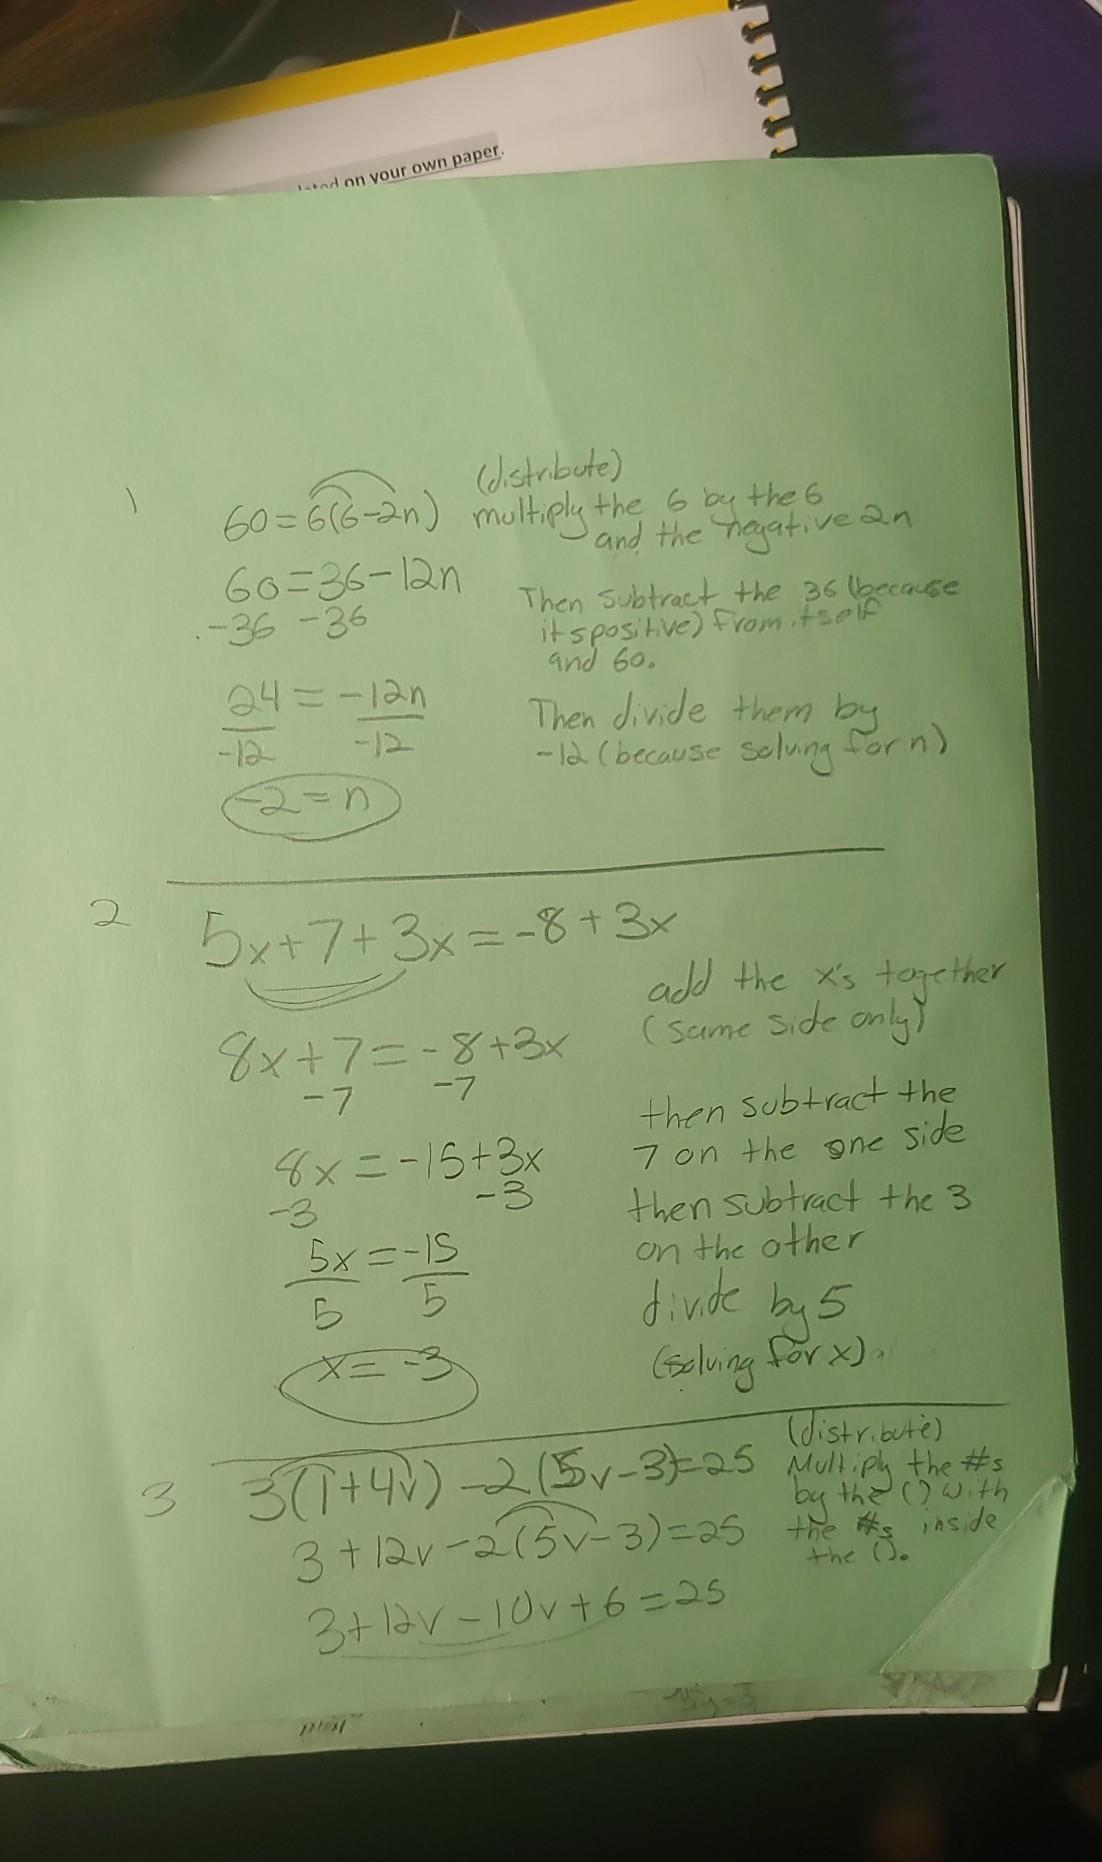 on your own paper.
1
60=6(6-2n)
(distribute)
multiply the 6 by the 6
and the negative 2n
60=36-12n
-36 -36
Then subtract the 36 (because
its positive) from itself
and 60.
24 = -12n
-12 -12
Then divide them by
-12 (because solving for n)
-2=n
2
5x+7+3x=-8+3x
add the x's together
(same side only)
8x+7=-8+3x
-7 -7
then subtract the
7 on the one side
8x=-15+3x
-3 -3
then subtract the 3
on the other
5x=-15
5 5
divide by 5
(solving for x).
x=-3
3
3(1+4v)-2(5v-3)=25
(distribute)
Multiply the #s
by the () with
the #s inside
the ().
3+12v-2(5v-3)=25
3+12v-10v+6=25